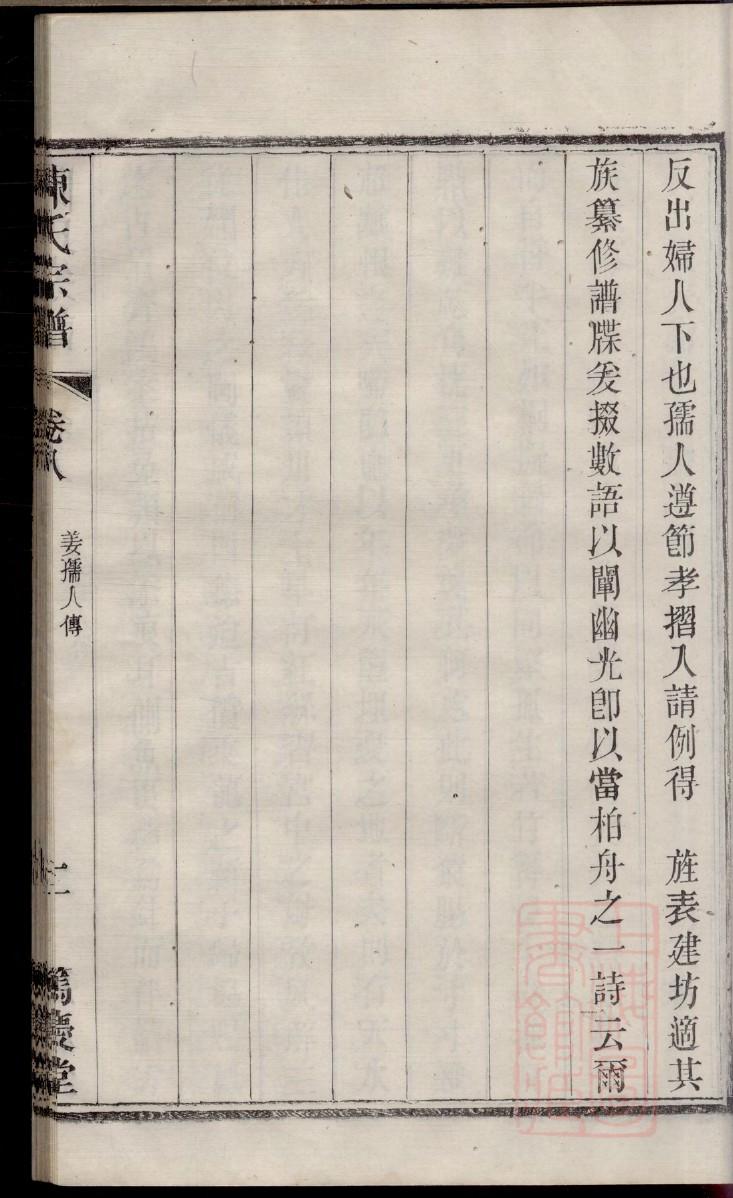 反出婦人下也孺人遵節孝摺入請例得　旌表建坊適其
族纂修譜牒爰掇數語以闡幽光卽以當柏舟之一詩云爾
陳氏宗譜
卷八
姜孺人傳
二
篤慶堂
上海圖書館藏